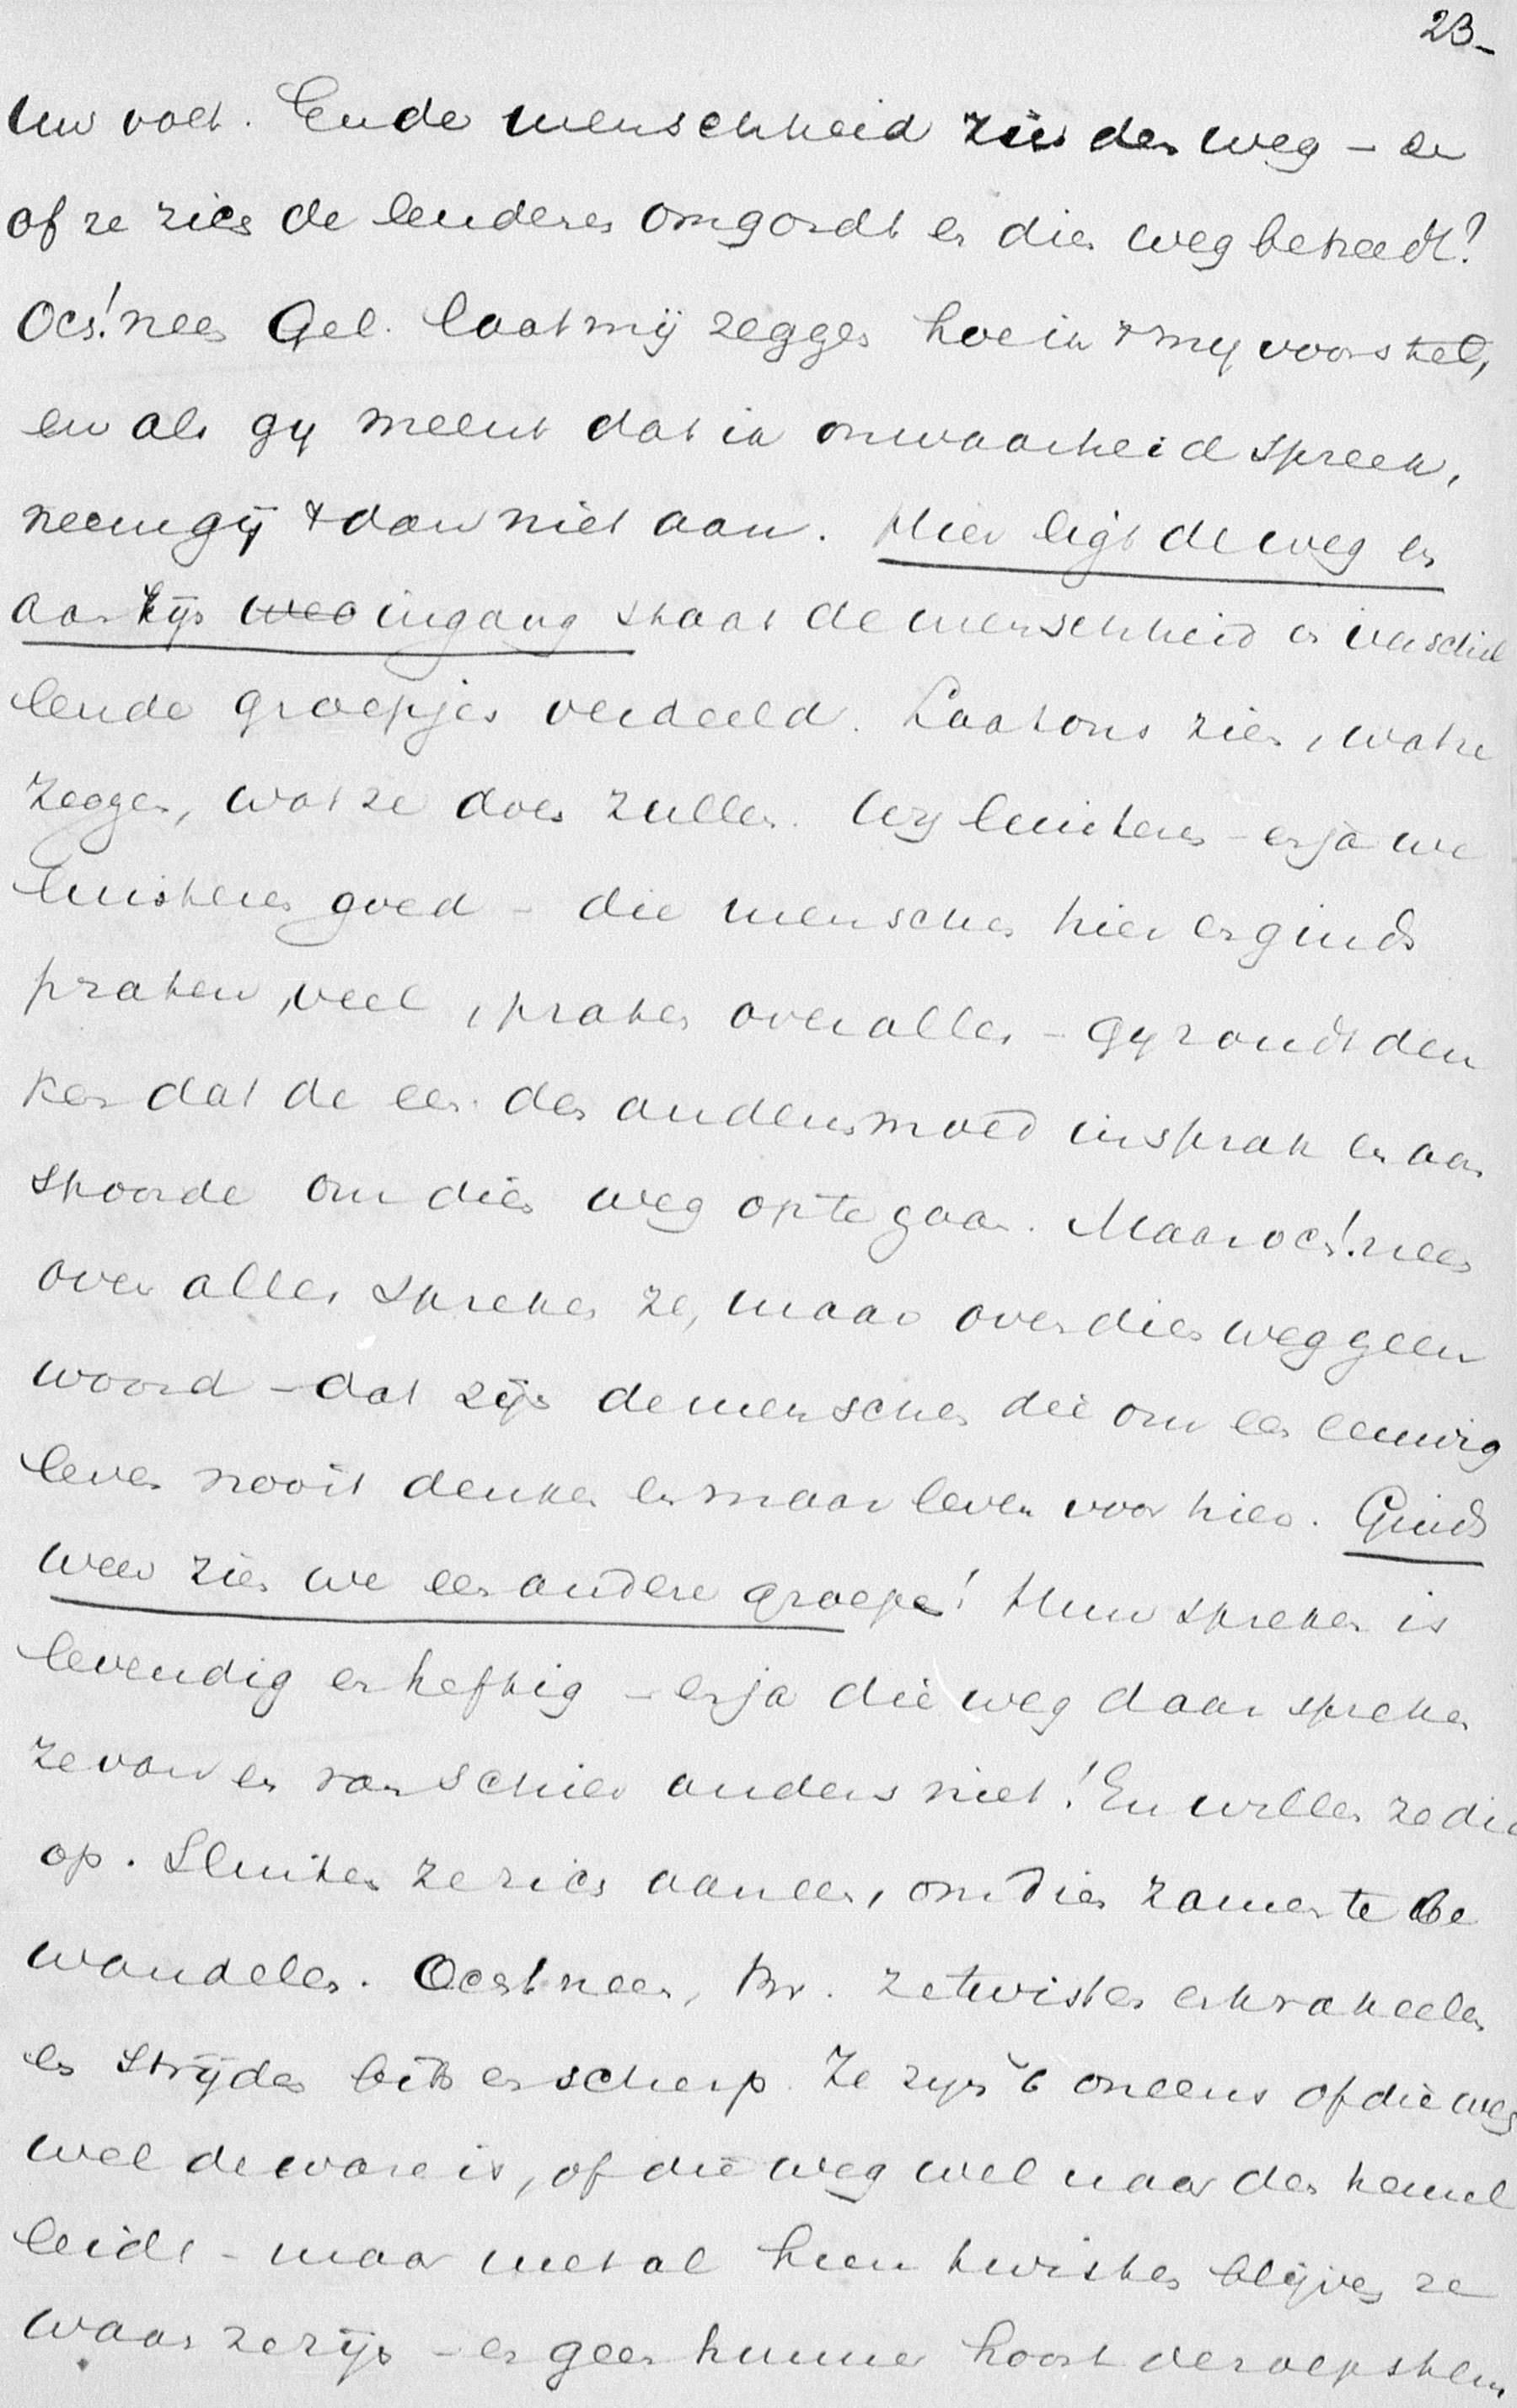 23-
uw voet. En de menschheid zie den weg - en
of ze zich de lenderen omgordt en dien weg betreedt?
Och! neen Gel. laat mij zeggen hoe ik 't my voorstel,
en als gy meent dat ik onwaarheid spreek,
neem gij 't dan niet aan. Hier ligt de weg en
aan zijn ingang staat de menschheid in verschil
lende groepjes verdeeld. Laat ons zien, wat ze
zeggen, wat ze doen zullen. Wy luisteren - en ja we
luisteren goed - die menschen hier en ginds
praten veel, praten over alles - Gy zoudt den
ken dat de een den anderen moed insprak en aan
spoorde om dien weg op te gaan. Maar och! neen
over alles spreken ze, maar over dien weg geen
woord - dat zijn de menschen die om een eeuwig
leven nooit denken en maar leven voor hier. Ginds
weer zien we een andere groepe! Hun spreken is
levendig en heftig - en ja die weg daar spreken
ze van en van schier anders niet! En willen ze die
op. Sluiten ze zich aaneen, om dien zamen te be
wandelen. Och neen, Br. ze twisten en krakeelen
en strijden bits en scherp. Ze zyn 't oneens of die weg
wel de ware is, of die weg wel naar den hemel
leidt - maar met al hun twisten blijven ze
waar ze zijn - en geen hunner hoort de roepstem